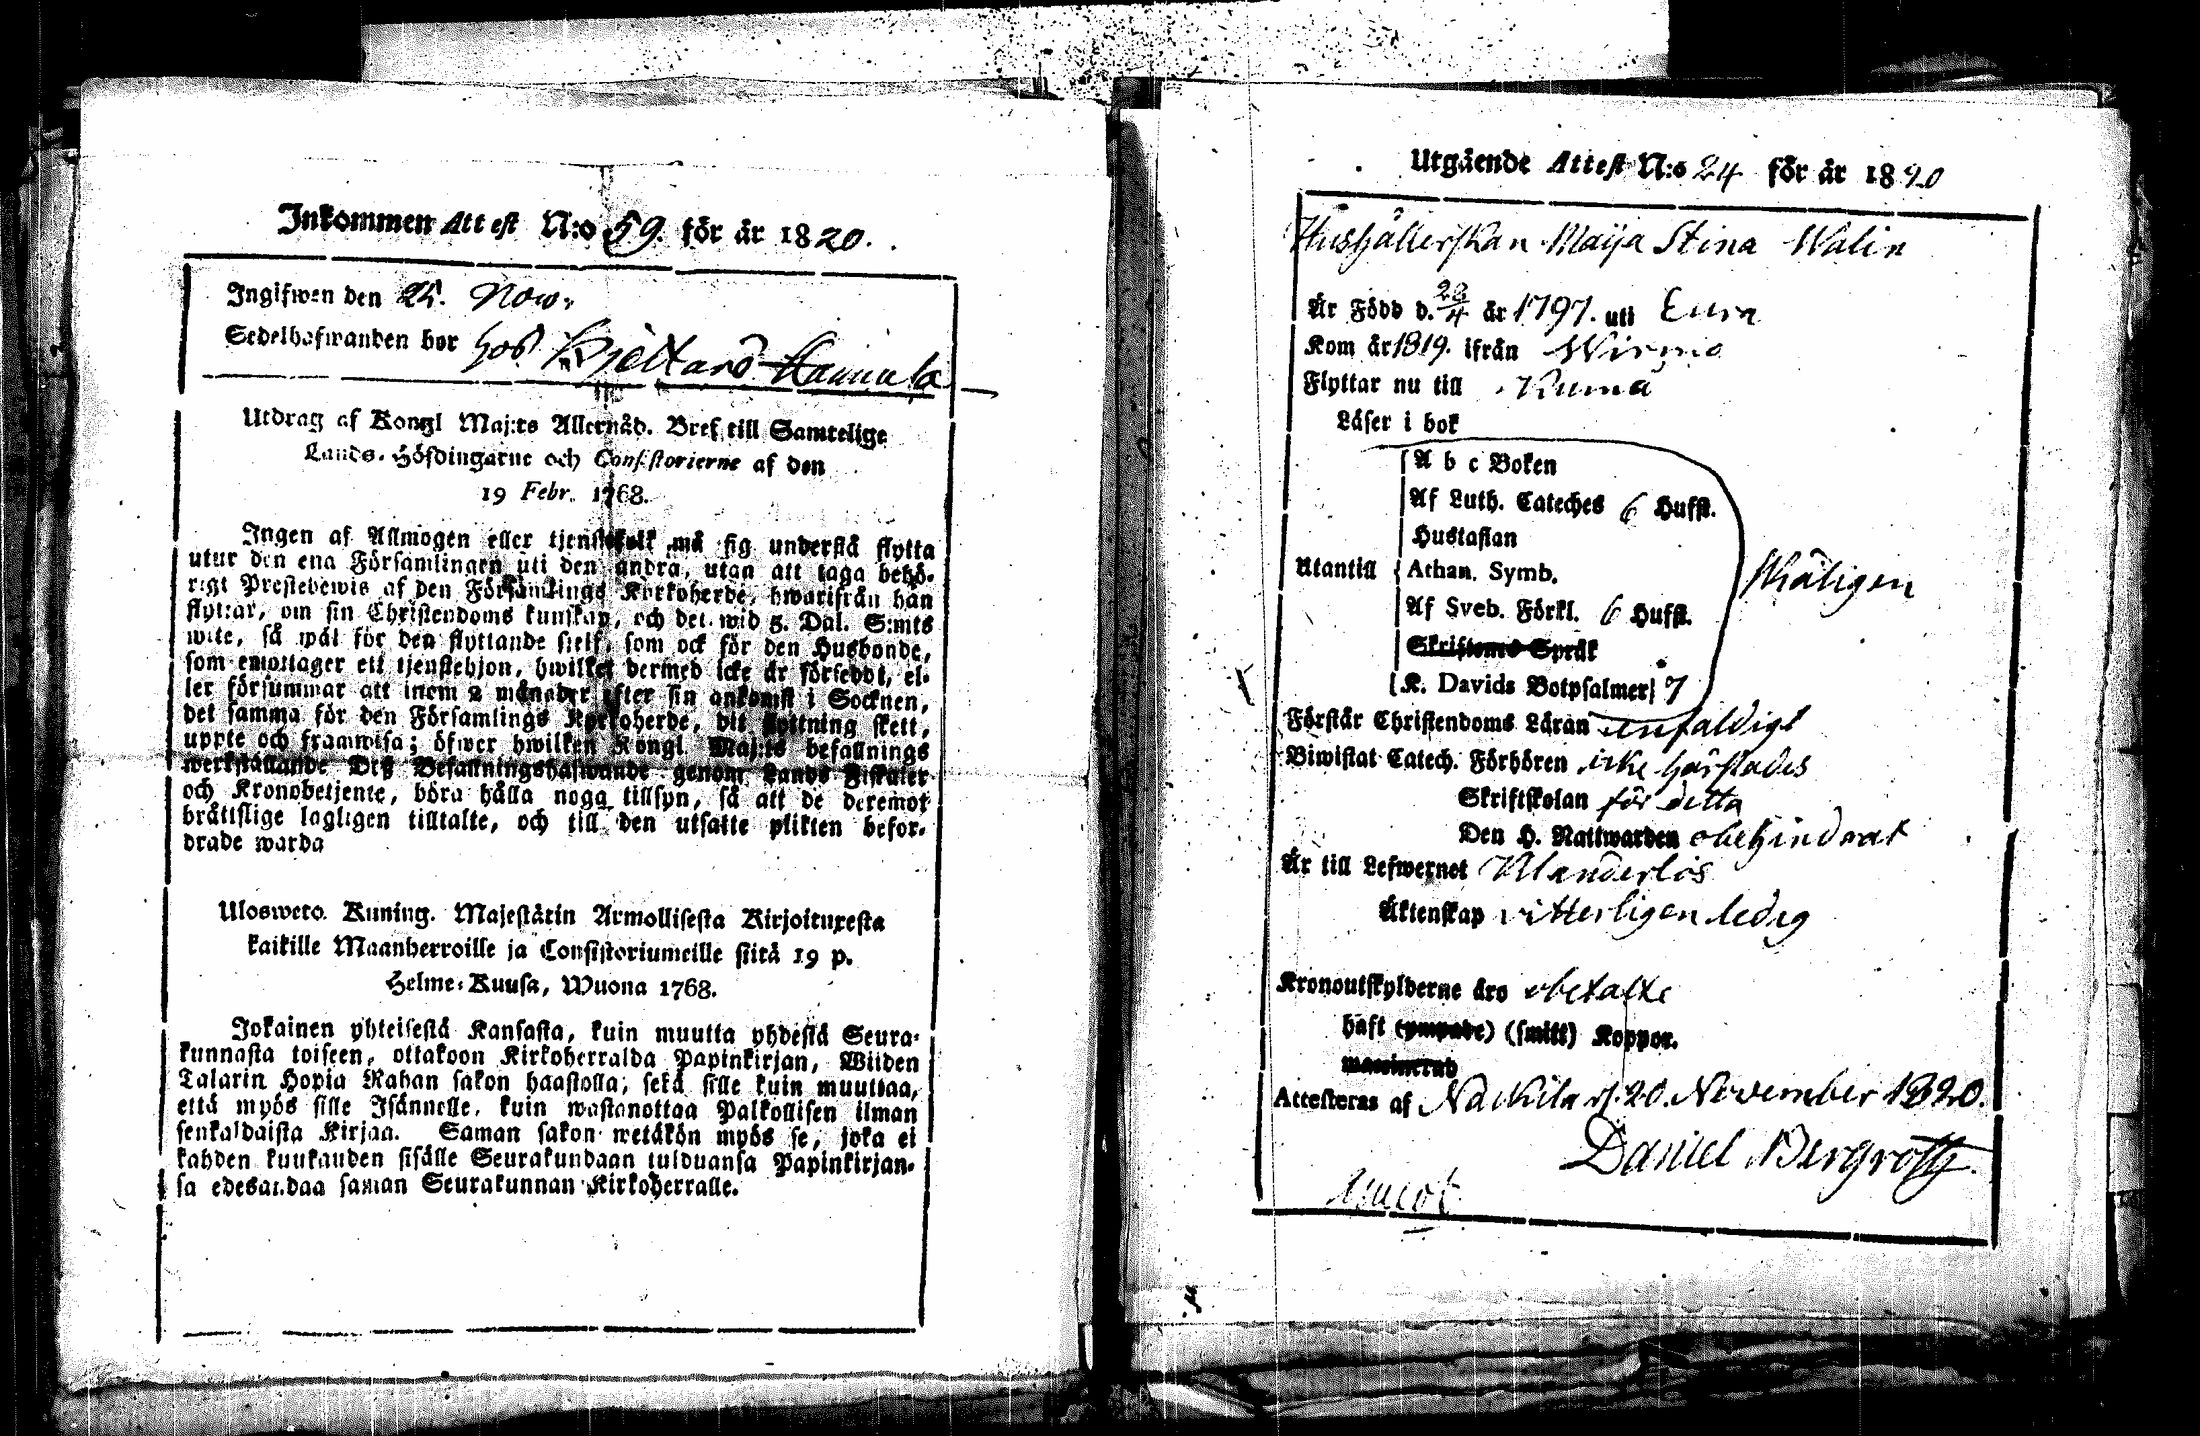 Inkommen Attest N:o 59. för år 1820.
Ingifwen den 25. Now.
Sedelhafwanden bor hos
Utdrag af Kongl Maj:ts Allernåd. Bref till Samtelige
Lands-Höfdingarne och Consistorierne af den
19 Febr. 1768.
Ingen af Allmogen eller tjenstefolk må sig understå flytta
utur den ena Församlingen uti den andra, utan att taga behö-
rigt Prestebewis af den Församlings Kyrkoherde, hwarifrån han
flyttar, om sin Christendoms kunskap, och det wid 5. Dal. S:mts
wite, så wäl för den flyttande sjelf, som ock för den Husbonde,
som emottager ett tjenstehjon, hwilket dermed icke är försedt, el-
ler försummar att inom 2 månader efter sin ankomst i Socknen,
det samma för den Församlings Kyrkoherde, dit flyttning skett,
uppte och framwisa; öfwer hwilken Kongl. Maj:ts befallnings
werkställande Deß Befallningshafwande genom Lands Fiskaler
och Kronobetjente, böra hålla noga tillsyn, så att de deremot
bråttslige lagligen tilltalte, och till den utsatte plikten befor-
drade warda
Ulosweto. Kuning. Majestätin Armollisesta Kirjoituxesta
kaikille Maanherroille ja Consistoriumeille siitä 19 p.
Helme-Kuusa, Wuona 1768.
Jokainen yhteisestä Kansasta, kuin muutta yhdestä Seura-
kunnasta toiseen, ottakoon Kirkoherralda Papinkirjan, Wiiden
Talarin Hopia Rahan sakon haastolla; sekä sille kuin muuttaa,
että myös sille Isännelle, kuin wastanottaa Palkollisen ilman
senkaldaista Kirjaa. Saman sakon wetäkön myös se, joka ei
kahden kuukauden sisälle Seurakundaan tulduansa Papinkirjan-
sa edesandaa saman Seurakunnan Kirkoherralle.
Utgående Attest N:o 24 för år 1820
Hushållerskan Maija Stina Walin
Är Född d. 23/4 år 1797. uti Eura
Kom år 1819. ifrån Wirmo
Flyttar nu till Kumå
Läser i bok
A b c Boken
Af Luth. Cateches 6 Hufst.
Hustaflan
Utantill Athan. Symb. Skäligen
Af Sveb. Förkl. 6 Hufst.
Skriftenes Språk
K. Davids Botpsalmer 7
Förstår Christendoms Läran enfaldigt
Biwistat Catech. Förhören icke härstädes
Skriftskolan för detta
Den H. Nattwarden obehindrat
Är till Lefwernet Klanderlös
Äktenskap witterligen ledig
Kronoutskylderne äro obetalte
haft (ympade) (smitt) Koppor.
waccinerad
Attesteras af Nackila d. 20. November 1820.
Daniel Bergroth